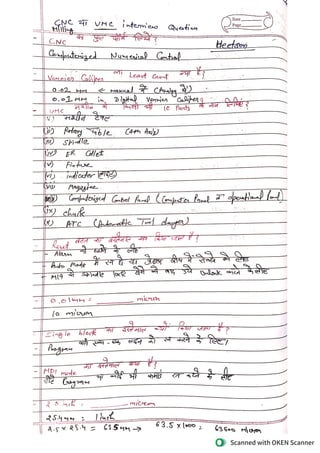 Date
Page
CNC या VMC interview Question
Milling
- CNC का पुरा फॉर्म लिखिये?
Heetson
Computerized Numerical Control
- Vernier Caliper का Least Count क्या है?
0.02 mm ← manual में (Analog में)
0.01 mm in Digital Vernier Caliper
- VMC मशीन के किसी भी 10 Parts के नाम लिखिए?
i) मशीन टेबल
ii) Rotary Table (4th Axis)
iii) Spindle
iv) ER Collet
v) Fixture
vi) indicator
vii) Magazine
viii) Computerized Control Panel (Computer Panel या operational Panel)
ix) chuck
x) ATC (Automatic Tool changer)
- Reset बटन का इस्तेमाल क्यों किया जाता है?
- Alarm को हटाने के लिए
Auto mode में चल रहे प्रोग्राम को रोकने के लिए
M19 से स्पिंडल lock होने के बाद उसे Unlock करने के लिए
- 0.01mm = ______ micron
10 micron
- Single block का इस्तेमाल क्यों किया जाता है?
Program को एक-एक लाइन से रन करने के लिए।
- MDI mode का इस्तेमाल क्या है?
छोटे Program या कोई भी कमांड रन करने के लिए
- 2.5 inch = ______ micron
25.4mm = 1 inch
2.5 x 25.4 = 63.5mm → 63.5 x 1000 = 63500 micron
Scanned with OKEN Scanner